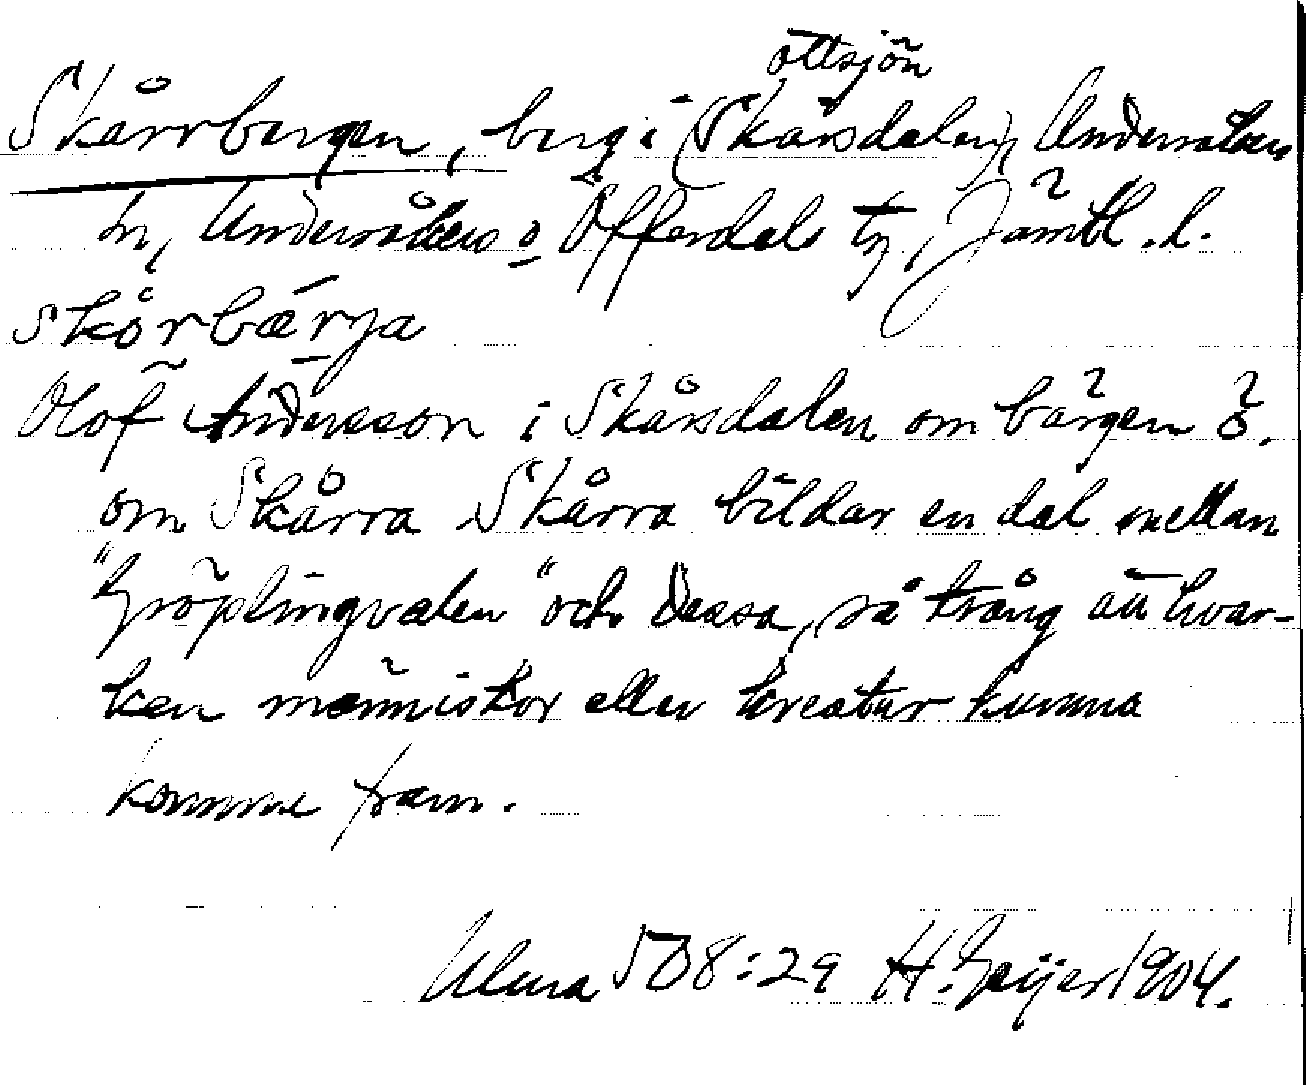 Ottsjön
Skårrbergen, berg i (Skårsdalen), Undersåkers
sn, Undersåkers o Offerdals tg, Jämtl. l.
skårbærja
Olof Andersson i Skårsdalen om bärgen ö.
om Skårra. Skårra bildar en dal mellan
"Gröplingvalen" och dessa, så trång att hvar-
ken människor eller kreatur kunna
komma fram.
Ulma 508:29 H. Geijer 1904.